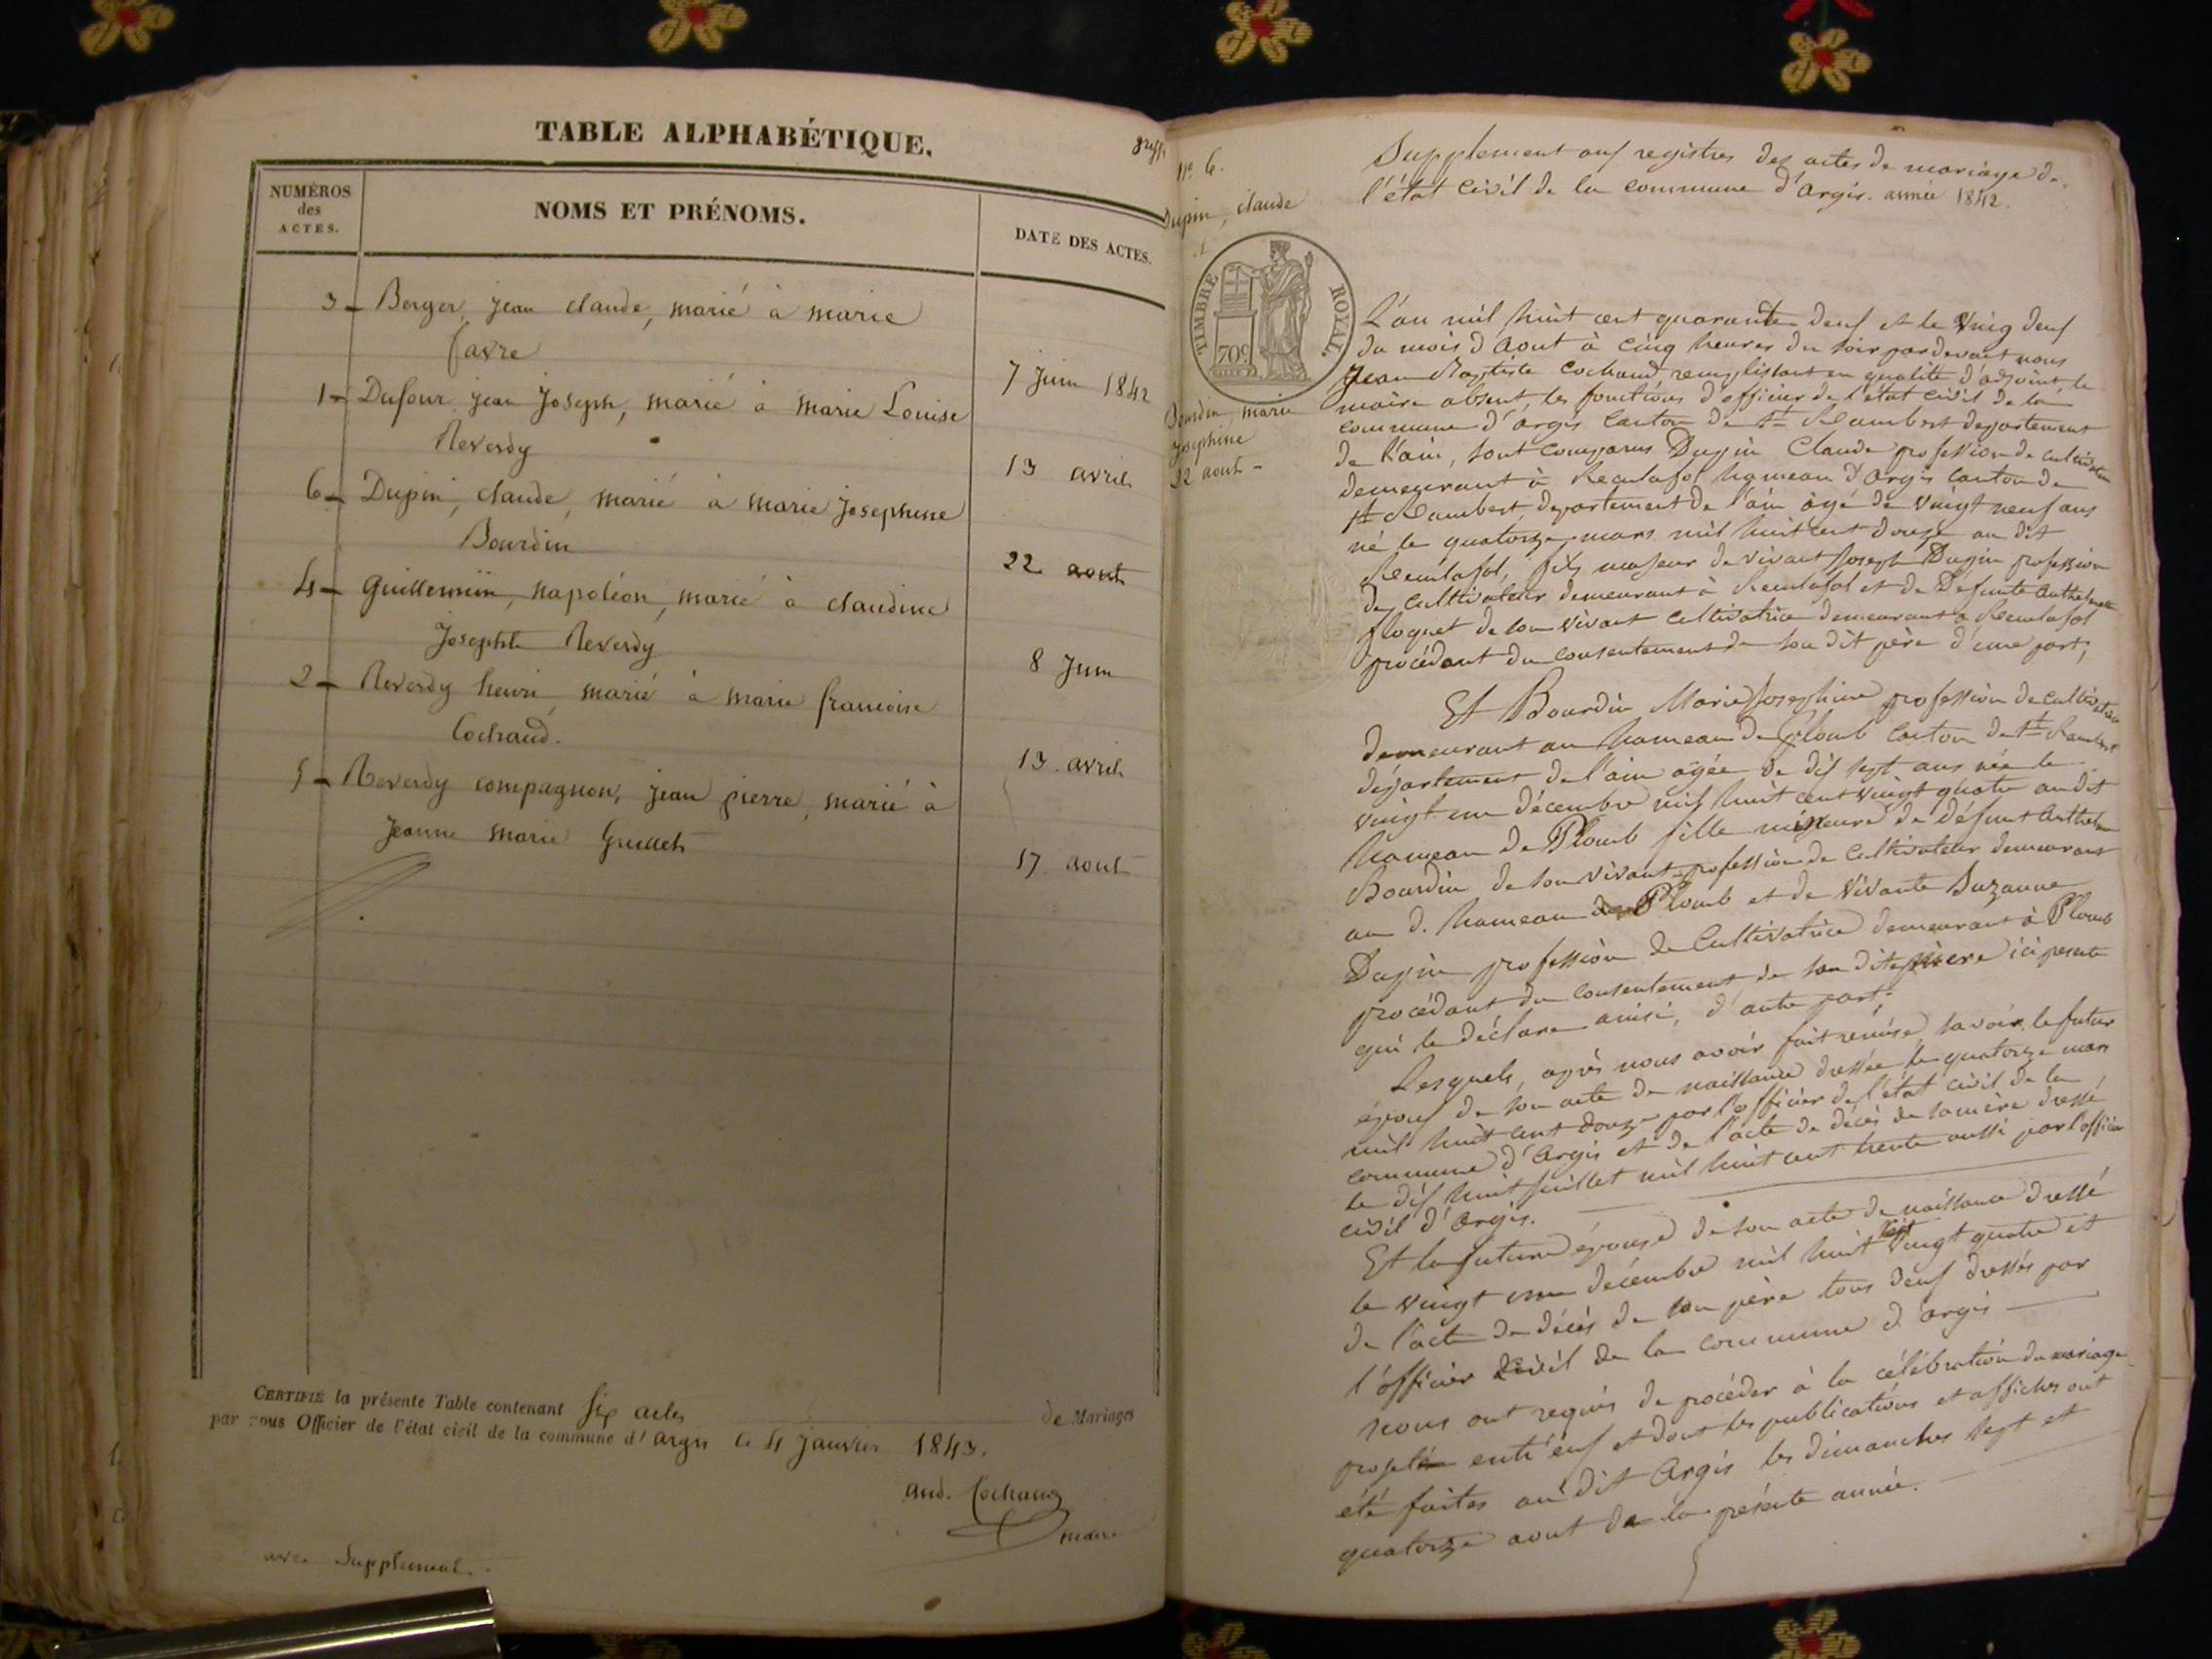 TABLE ALPHABÉTIQUE.
NUMÉROS
des
ACTES.
NOMS ET PRÉNOMS.
DATE DES ACTES.
3 - Berger, jean claude, marié à marie
favre
7 Juin 1842
1 - Dufour jean Joseph, marié à Marie Louise
Reverdy
13 avril
6 - Dupin, claude, marié à marie Josephine
Bourdin
22 aout
4 - Guillemin, napoléon, marié à claudine
Josephte Reverdy
8 Juin
2 - Reverdy henri, marié à marie françoise
Cochaud.
13 avril
5 - Reverdy compagnon, jean pierre, marié à
Jeanne marie Guillet
17 aout
CERTIFIÉ la présente Table contenant six actes de Mariages
par nous Officier de l'état civil de la commune d'argis le 4 janvier 1843.
and. Cochaud
maire
avec Supplement.
n°. 6.
Dupin, claude
Bourdin, marie
Josephine
22 aout -
TIMBRE ROYAL.
70c
Supplement aux registres des actes de mariage de
l'état civil de la commune d'argis. année 1842.
L'an mil huit cent quarante deux et le vingt deux
du mois d'aout à cinq heures du soir pardevant nous
Jean Baptiste Cochaud remplissant en qualité d'adjoint, le
maire absent, les fonctions d'officier de l'état civil de la
commune d'argis canton de St Rambert departement
de l'ain, sont comparus Dupin Claude profession de cultivateur
demeurant à Reculafol hameau d'Argis canton de
St Rambert, departement de l'ain âgé de vingt neuf ans
né le quatorze mars mil huit cent douze au dit
Reculafol, fils majeur de vivant Joseph Dupin profession
de cultivateur demeurant à Reculafol et de Défunte
de son vivant cultivatrice demeurant à Reculafol
procédant du consentement de son dit père d'une part;
Et Bourdin Marie Josephine profession de cultivatrice
demeurant au hameau de Plomb canton de St Rambert
département de l'ain agée de dix sept ans née le
vingt un décembre mil huit cent vingt quatre au dit
hameau de Plomb fille mineure de défunt
Bourdin de son vivant profession de cultivateur demeurant
au d. hameau de Plomb et de vivante Suzanne
Dupin profession de Cultivatrice demeurant à Plomb
procédant du consentement de sa dite mère ici présente
qui le déclare ainsi, d'autre part;
Lesquels, après nous avoir fait remise, savoir le futur
époux de son acte de naissance dressée le quatorze mars
mil huit cent douze par l'officier de l'état civil de la
commune d'Argis et de l'acte de décès de sa mère dressé
le dix huit juillet mil huit cent trente aussi par l'officier
civil d'Argis.
Et la future épouse de son acte de naissance dressé
le vingt un décembre mil huit cent vingt quatre et
de l'acte de décès de son père tous deux dressés par
l'officier civil de la commune d'argis
nous ont requis de procéder à la célébration du mariage
projeté entr'eux et dont les publications et affiches ont
été faites au dit Argis les dimanches sept et
quatorze aout de la présente année.